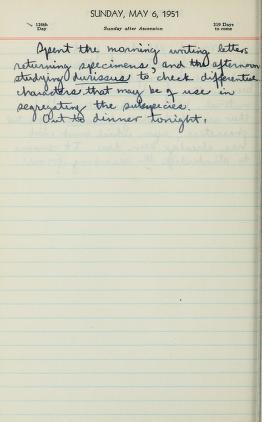 SUNDAY, MAY 6, 1951
126th
Day
Sunday after Ascension
239 Days
to come
Spent the morning writing letters
returning specimens, and the afternoon
studying durissus to check differential
characters that may be of use in
segregating the subspecies.
Out to dinner tonight.